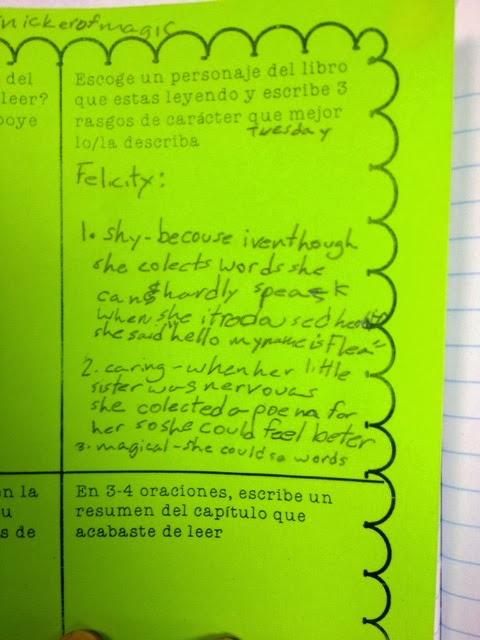 nickerofmagic
del
leer?
oye
Escoge un personaje del libro
que estas leyendo y escribe 3
rasgos de carácter que mejor
lo/la describa
Tuesday
Felicity:
1. shy - becouse iventhough
she colects words she
can hardly speak
when she itrodused her
she said "hello my name is Flea"
2. caring - when her little
sister was nervouas
she colected a poem for
her so she could feel beter
3. magical - she could se words
en la
u
s de
En 3-4 oraciones, escribe un
resumen del capítulo que
acabaste de leer